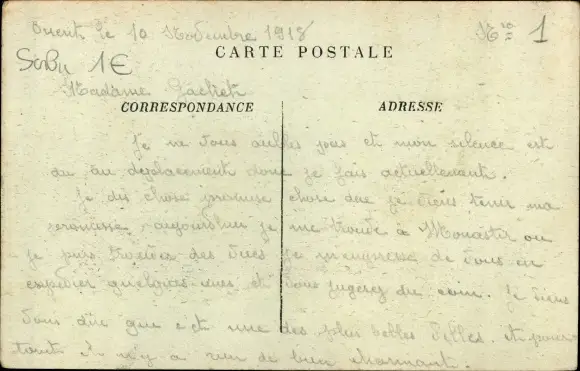 Orient le 10 Novembre 1918 No 1
CARTE POSTALE
Serbie 1€
Madame Gachet
CORRESPONDANCE ADRESSE
Je ne vous oublies pas et mon silence est
du au deplacement donc je fais actuellement.
Je dis chose promise chose due je viens tenir ma
promesse, aujourd'hui je me trouve a Monastir ou
je puis trouver des vues je m'empresse de vous en
expedier quelques unes et vous jugerez du coin. Je viens
vous dire que c'et une des plus belles villes. et pour
tout il n'y a rien de bien charmant.